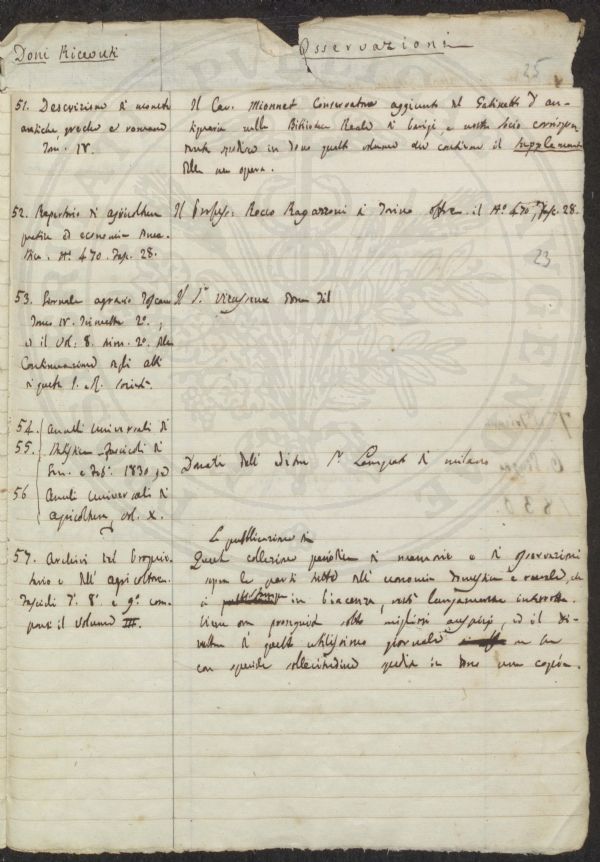 Doni Ricevuti
Osservazioni
25
51. Descrizione di monete
antiche greche e romane
Tom. IV.
Il Cav. Mionnet Conservatore aggiunto del Gabinetto d'an-
tiquaria nella Biblioteca Reale di Parigi, e nostro socio corrispon
dente spedisce in dono questo volume che contiene il supplemento
della sua opera.
52. Repertorio di agricoltura
pratica ed economia dome-
stica. No. 470. Fasc. 28.
Il Profess. Rocco Ragazzoni di Torino offre il No. 470, Fasc. 28.
23
53. Giornale agrario Toscano
Tomo IV. Trimestre 2o.,
ed il Vol. 8. num. 2o. della
Continuazione degli atti
di questa I. R. Società.
Il Sr. Vieusseux Dono del
54. Annali Universali di
55. Statistica Fascicoli di
Gen. e Feb. 1830, ed
56 Annali Universali di
agricoltura, vol. X.
Donati dall' Editore Sr. Lampato di Milano
57. Archivi del Proprie-
tario e dell' agricoltore.
Fascicoli 7. 8. e 9. com
ponenti il volume III.
La pubblicazione di
Questa collezione periodica di memorie e di osservazioni
sopra le parti tutte dell' economia domestica e rurale, che
si in Piacenza, restò lungamente interrotta.
Viene ora proseguita sotto migliori auspicj, ed il Di-
rettore di questo utilissimo giornale
con speciale sollecitudine spedia in dono una copia.